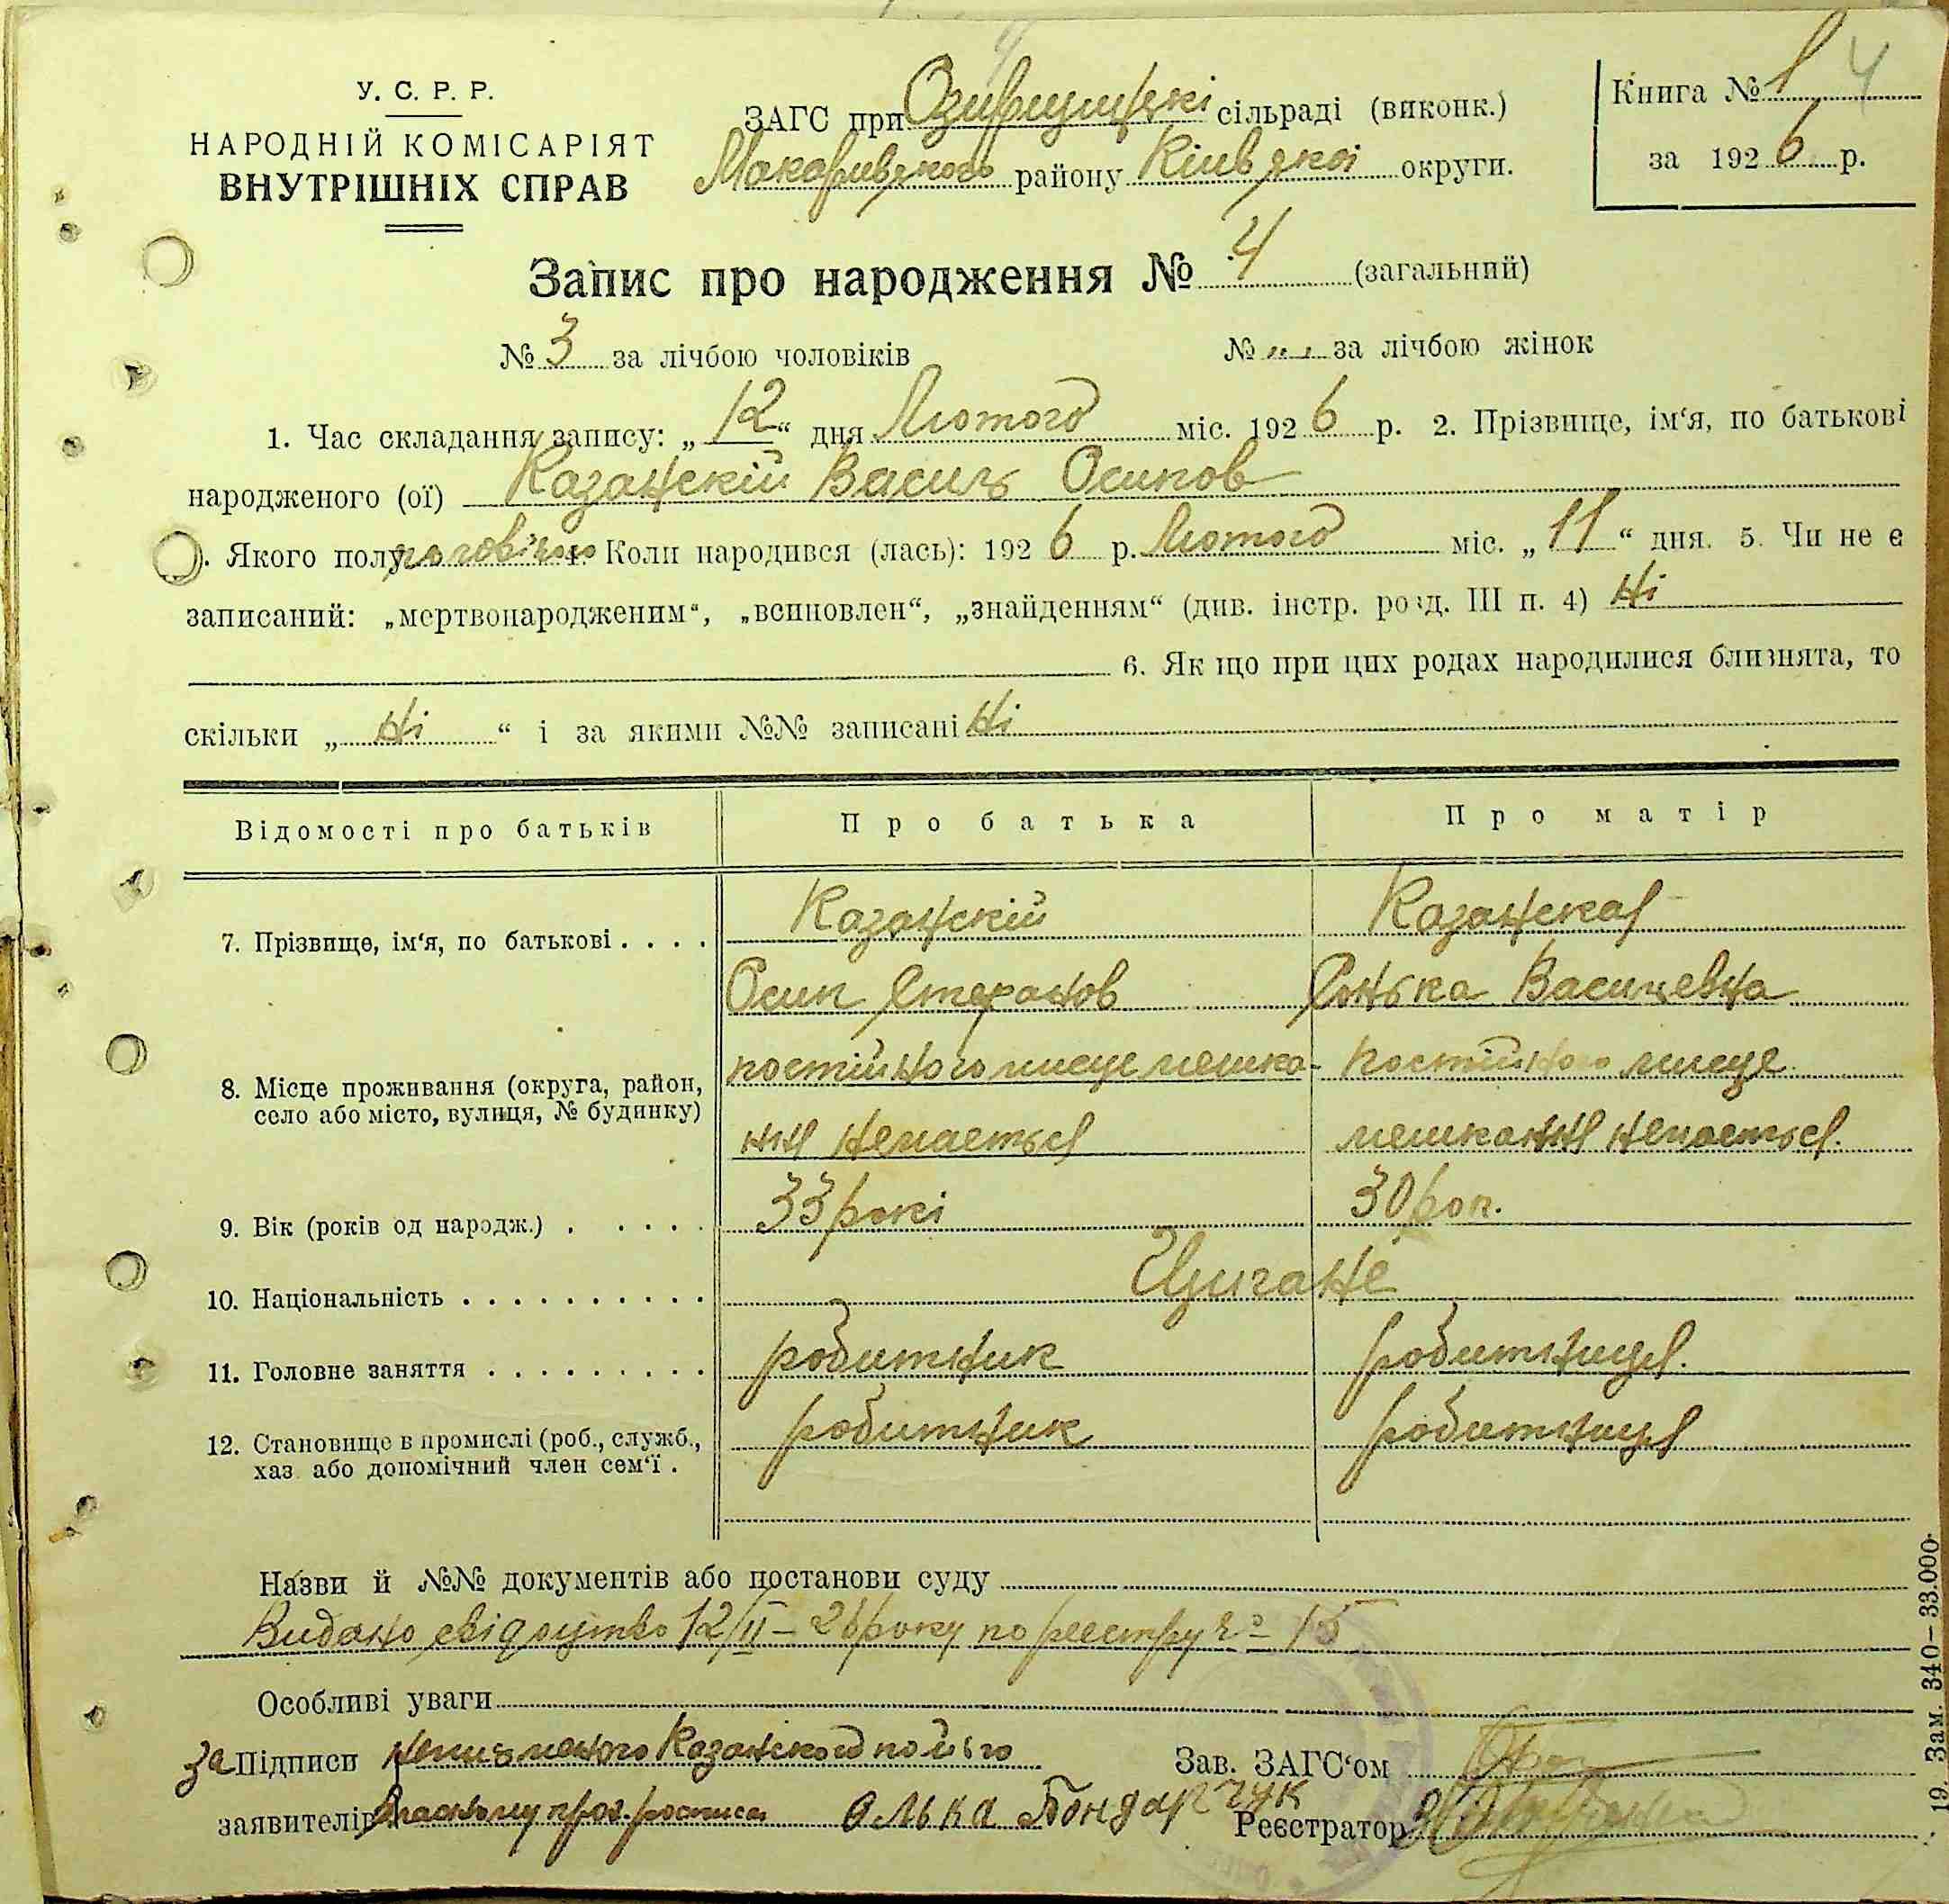 У. С. Р. Р.
НАРОДНІЙ КОМІСАРІЯТ
ВНУТРІШНІХ СПРАВ
ЗАГС при Озирщцькі сільраді (виконк.)
Макарівского району Київської округи.
Книга № 1 4
за 1926 р.
Запис про народження № 4 (загальний)
№ 3 за лічбою чоловіків № „ за лічбою жінок
1. Час складання запису: „12“ дня Лютого міс. 1926 р. 2. Прізвище, ім‘я, по батькові
народженого (ої) Казанскій Василь Осипов
. Якого полу чоловічого 4. Коли народився (лась): 1926 р. Лютого міс. „11“ дня. 5. Чи не є
записаний: „мертвонародженим“, „всиновлен“, „знайденням“ (див. інстр. розд. III п. 4) Ні
6. Як що при цих родах народилися близнята, то
скільки „ Ні “ і за якими №№ записані Ні
Відомості про батьків Про батька Про матір
7. Прізвище, ім‘я, по батькові . . . . Казанскій Казанская
Осип Степанов Сонька Василевна
8. Місце проживання (округа, район, село або місто, вулиця, № будинку) постійного мисце мешка- постійного мисце
ння немається мешкання немається.
9. Вік (років од народж.) . . . . . 33 рокі 30 рок.
10. Національність . . . . . . . . . . . Цигане
11. Головне заняття . . . . . . . . . робитник робитниця.
12. Становище в промислі (роб., служб., хаз. або допомічний член сем‘ї . робитник робитниця
Назви й №№ документів або постанови суду
Видано свідоцтво 12/II – 26 року по реестру № 15
Особливі уваги
За Підписи неписменого Казанского по його
заявителів власному прох. росписа Олька Бондарчук
Зав. ЗАГС‘ом
Реєстратор
19. Зам. 340—33.000